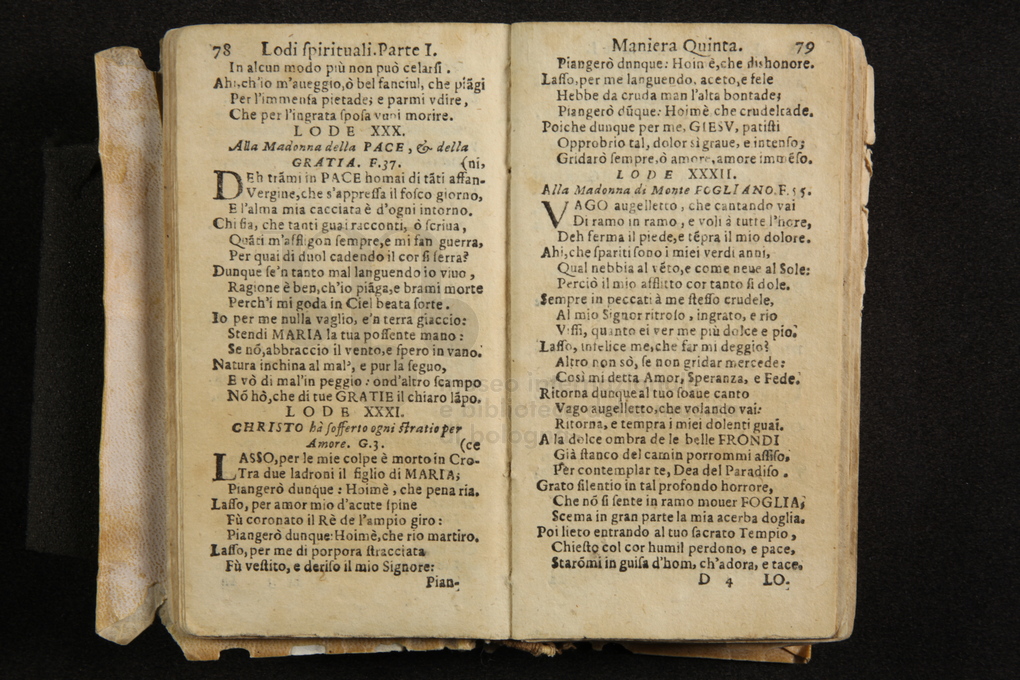 78 Lodi ſpirituali. Parte I.
In alcun modo più non può celarſi.
Ahi, ch'io m'aueggio, ò bel fanciul, che piāgi
Per l'immenſa pietade; e parmi vdire,
Che per l'ingrata ſpoſa vuoi morire.
LODE XXX.
Alla Madonna della PACE, & della
GRATIA. F.37. (ni,
DEh trāmi in PACE homai di tāti affan-
Vergine, che s'appreſſa il foſco giorno,
E l'alma mia cacciata è d'ogni intorno.
Chi fia, che tanti guai racconti, ò ſcriua,
Quāti m'affligon ſempre, e mi fan guerra,
Per quai di duol cadendo il cor ſi ſerra?
Dunque ſe'n tanto mal languendo io viuo,
Ragione è ben, ch'io piāga, e brami morte
Perch'i mi goda in Ciel beata ſorte.
Io per me nulla vaglio, e'n terra giaccio:
Stendi MARIA la tua poſſente mano:
Se nó, abbraccio il vento, e ſpero in vano.
Natura inchina al mal, e pur la ſeguo,
E vò di mal'in peggio: ond'altro ſcampo
Nó hò, che di tue GRATIE il chiaro lāpo.
LODE XXXI.
CHRISTO hà ſofferto ogni ſtratio per
Amore. G.3. (ce
LASSO, per le mie colpe è morto in Cro-
Tra due ladroni il figlio di MARIA;
Piangerò dunque: Hoimè, che pena ria.
Laſſo, per amor mio d'acute ſpine
Fù coronato il Rè de l'ampio giro:
Piangerò dunque: Hoimè, che rio martiro.
Laſſo, per me di porpora ſtracciata
Fù veſtito, e deriſo il mio Signore:
Pian-
Maniera Quinta. 79
Piangerò dnnque: Hoimè, che dishonore.
Laſſo, per me languendo, aceto, e fele
Hebbe da cruda man l'alta bontade;
Piangerò dūque: Hoimè che crudeltade.
Poiche dunque per me, GIESV, patiſti
Opprobrio tal, dolor sì graue, e intenſo;
Gridarò ſempre, ò amore, amore immēſo.
LODE XXXII.
Alla Madonna di Monte FOGLIANO. F.55.
VAGO augelletto, che cantando vai
Di ramo in ramo, e voli à tutte l'hore,
Deh ferma il piede, e tēpra il mio dolore.
Ahi, che ſpariti ſono i miei verdi anni,
Qual nebbia al vēto, e come neue al Sole:
Perciò il mio afflitto cor tanto ſi dole.
Sempre in peccati à me ſteſſo crudele,
Al mio Signor ritroſo, ingrato, e rio
Viſſi, quanto ei ver me più dolce e pio.
Laſſo, infelice me, che far mi deggio?
Altro non sò, ſe non gridar mercede:
Così mi detta Amor, Speranza, e Fede.
Ritorna dunque al tuo ſoaue canto
Vago augelletto, che volando vai:
Ritorna, e tempra i miei dolenti guai.
A la dolce ombra de le belle FRONDI
Già ſtanco del camin porrommi aſſiſo,
Per contemplar te, Dea del Paradiſo.
Grato ſilentio in tal profondo horrore,
Che nó ſi ſente in ramo mouer FOGLIA;
Scema in gran parte la mia acerba doglia.
Poi lieto entrando al tuo ſacrato Tempio,
Chieſto col cor humil perdono, e pace,
Starómi in guiſa d'hom, ch'adora, e tace.
D 4 LO-